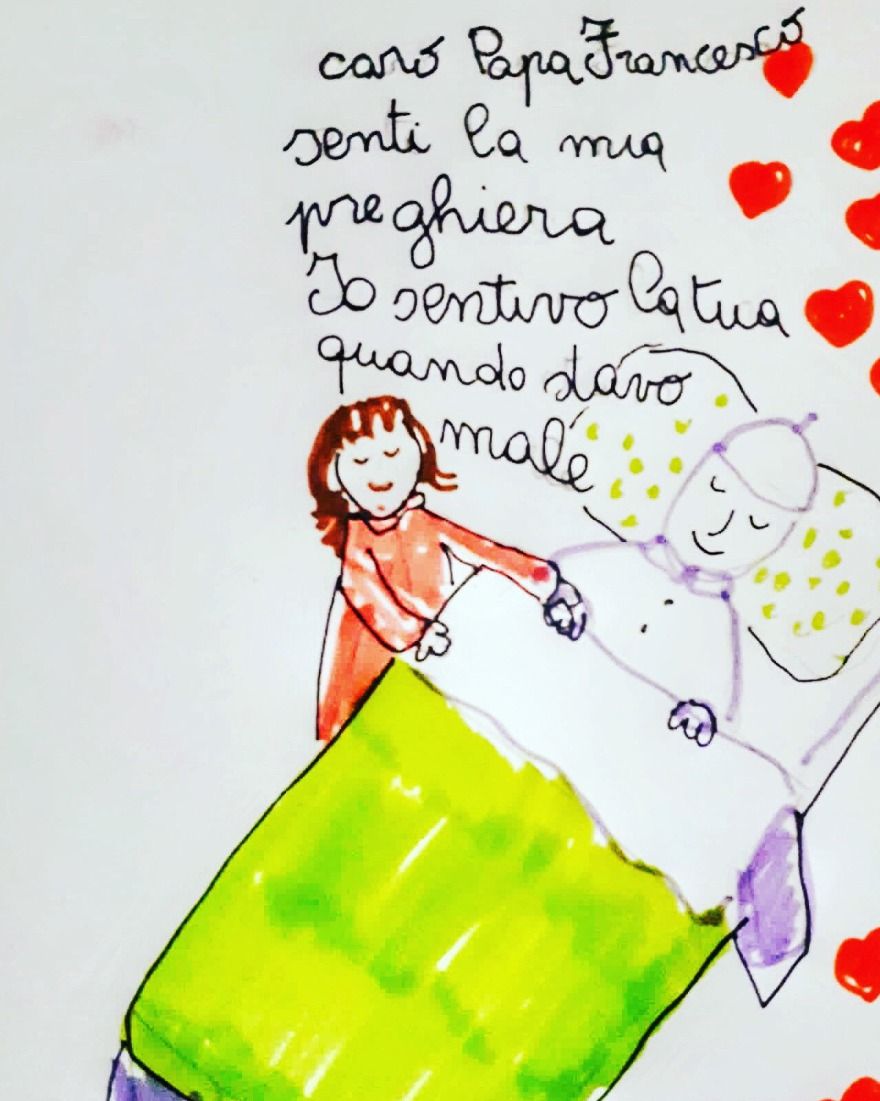 caro Papa Francesco
senti la mia
preghiera
Io sentivo la tua
quando stavo
male